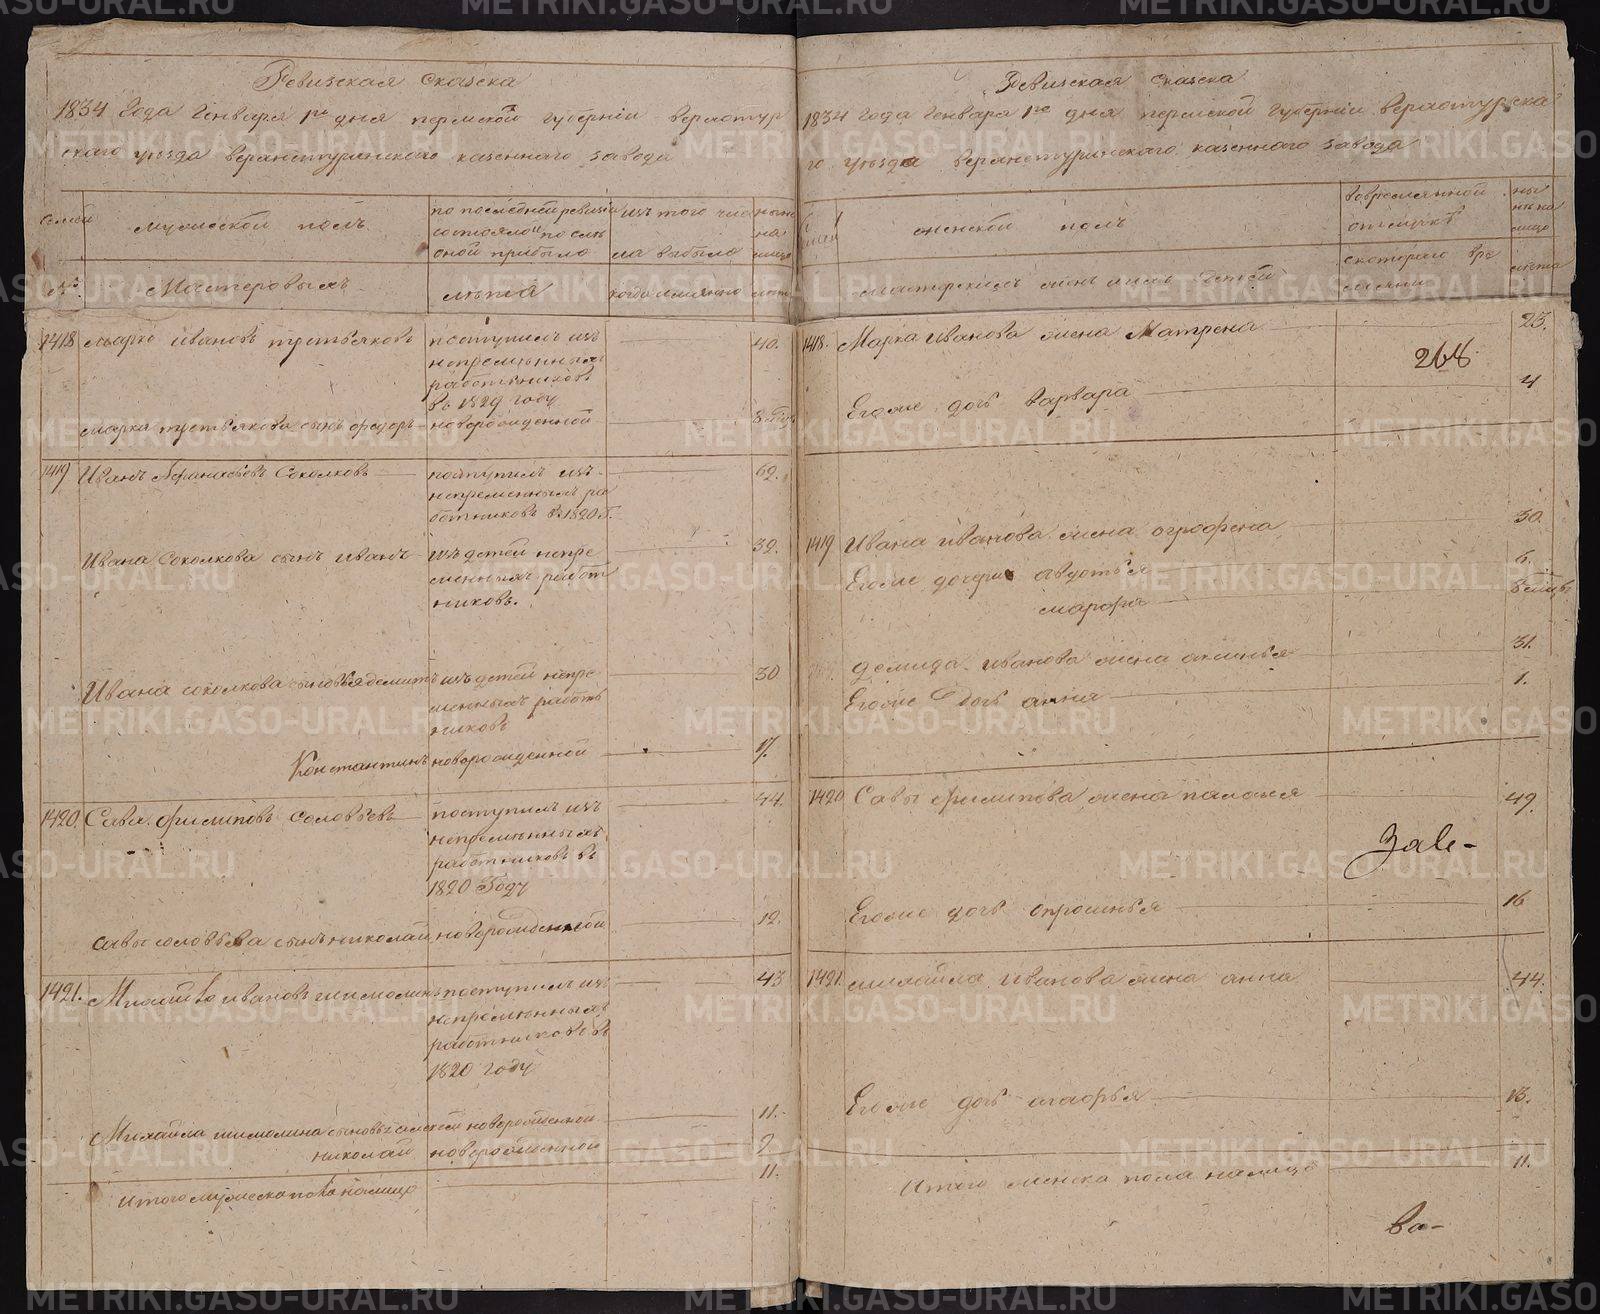 Ревизская Сказска
1834 Года Генваря 1го дня пермской губернiи верхотур
скаго уезда верхнетуринского казенного завода
Семей
мужеской полъ
по последней ревизiи
состояло и после
оной прибыло
изъ того чис
ла выбыло
ныне
на
лицо
№
Мастеровыхъ
лета
когда имянно
лета
1418 Марко ивановъ пустьяковъ
поступилъ изъ
непременныхъ
работниковъ
въ 1829 году
40.
марка пустьякова сынъ федоръ
новорожденной
1419 Иванъ Афанасьевъ Соколковъ
поступилъ изъ
непременныхъ ра
ботниковъ в 1820 г.
62.
Ивана Соколкова сынъ иванъ
изъ детей непре
менныхъ работ
никовъ.
39.
Ивана соколкова сыновья демитъ
изъ детей непре
менныхъ работ
никовъ
30
Константинъ новорожденной
17.
1420. Сава филиповъ соловьевъ
поступилъ изъ
непременныхъ
работниковъ въ
1820 Году
44.
савы соловьева сынъ николай новорожденной
12.
1421. Михайло ивановъ шимолинъ
поступилъ изъ
непременныхъ
работниковъ въ
1820 году
43
Михайла шимолина сыновья
новорожденной
11.
николай новорожденной
9
итого мужеска пола налицо
11.
Ревизская сказска
1834 года Генваря 1го дня пермской губернiи верхотурска
го уезда верхнетуринского казенного завода
женской полъ
вовременной
отлучке
ны
не на
лицо
мастерскихъ женъ ихъ детей
скотораго вре
мени
лета
1418. Марка иванова жена Матрена
23.
268
Егоже дочь варвара
4
1419 Ивана иванова жена огрофена
30.
Егоже дочери авдотья
6.
марфа
демида иванова жена аксинья
31.
Егоже дочь анна
1.
1420 Савы филипова жена палагея
49.
Заве-
Егоже дочь опросинья
16
1421. михайла иванова жена анна
44.
Егоже дочь
13.
Итого женска пола налицо
11.
ва-
METRIKI.GASO-URAL.RU